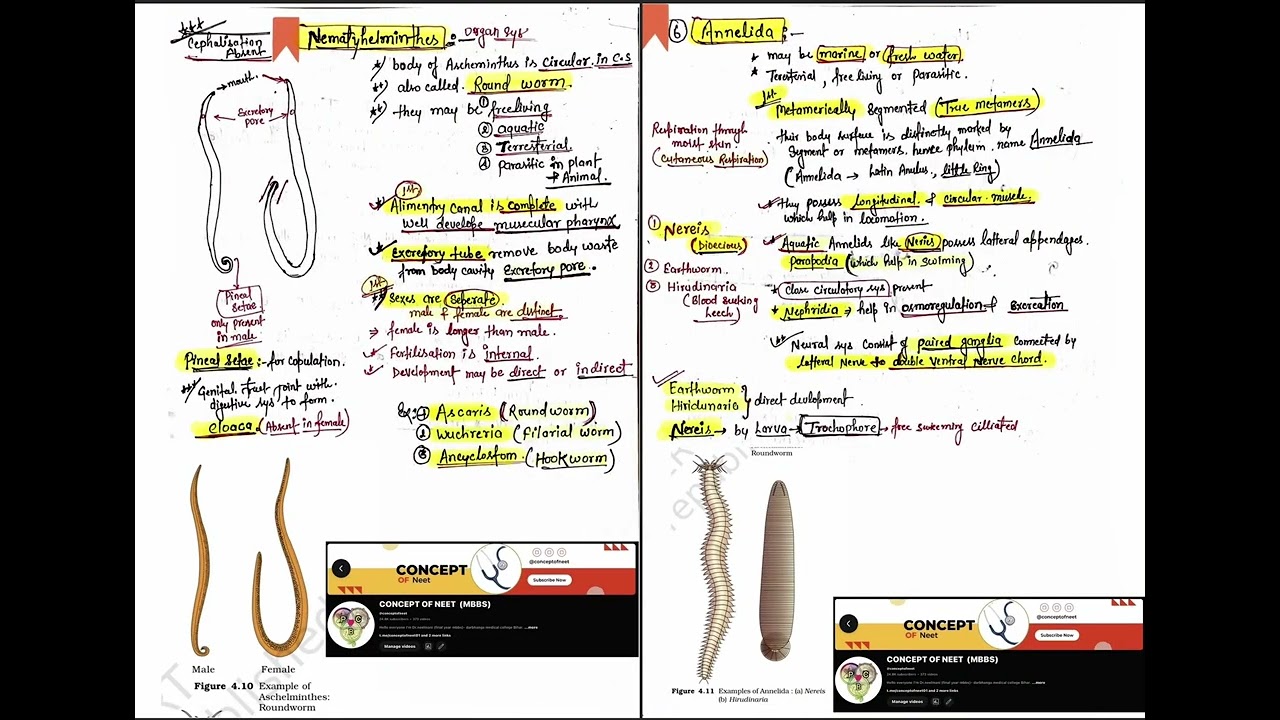 Cephalisation
Absent
Nemathyhelminthes :- Organ Sys
body of Ascheminthes is circular in C.S
also called Round worm.
they may be ① freeliving
② aquatic
③ Terresterial
④ Parasitic in plant
→ Animal.
→ mouth
Excretory
pore
1st
Alimentry Canal is complete with
well develope muscular pharynx
Excretory tube remove body waste
from body cavity Excretory pore.
1st
Sexes are Seperate
male & female are distinct.
⇒ female is longer than male.
Fertilisation is internal.
Development may be direct or indirect
Pineal
Setae
only present
in male
Pineal setae :- for copulation.
Genital tract joint with
digestive sys to form.
cloaca (Absent in female)
Eg:- ① Ascaris (Roundworm)
② Wuchreria (Filarial worm)
③ Ancyclostom (Hookworm)
Male Female
Figure 4.10 Example of
Aschelminthes:
Roundworm
CONCEPT
OF Neet
@conceptofneet
Subscribe Now
CONCEPT OF NEET (MBBS)
@conceptofneet
...more
t.me/conceptofneet01 and 2 more links
Manage videos
⑥ Annelida :-
* may be marine or fresh water.
* Teresterial, free living or Parasitic.
1st
Metamerically Segmented (True metamers)
this body surface is distinctly marked by
Segment or metamers. hence phylum name Annelida
(Annelida → Latin Anulus, little Ring)
Respiration through
moist skin.
(Cutaneous Respiration)
they possess Longitudinal & circular muscle.
which help in locomation.
① Nereis
(Dioecious)
② Earthworm.
③ Hirudinaria
(Blood sucking
leech)
Aquatic Annelids like Neries possess latteral appendages.
parapodia (which help in swiming)
* Close circulatory sys present
* Nephridia → help in osmoregulation & Excreation
Neural sys consist of paired ganglia connected by
latteral Nerve to double ventral nerve chord.
Earthworm
Hiridunario } direct devlopment.
Nereis → by Larva → Trochophore → free swimming cilliated
Roundworm
Figure 4.11 Examples of Annelida : (a) Nereis
(b) Hirudinaria
CONCEPT
OF Neet
@conceptofneet
Subscribe Now
CONCEPT OF NEET (MBBS)
@conceptofneet
...more
t.me/conceptofneet01 and 2 more links
Manage videos